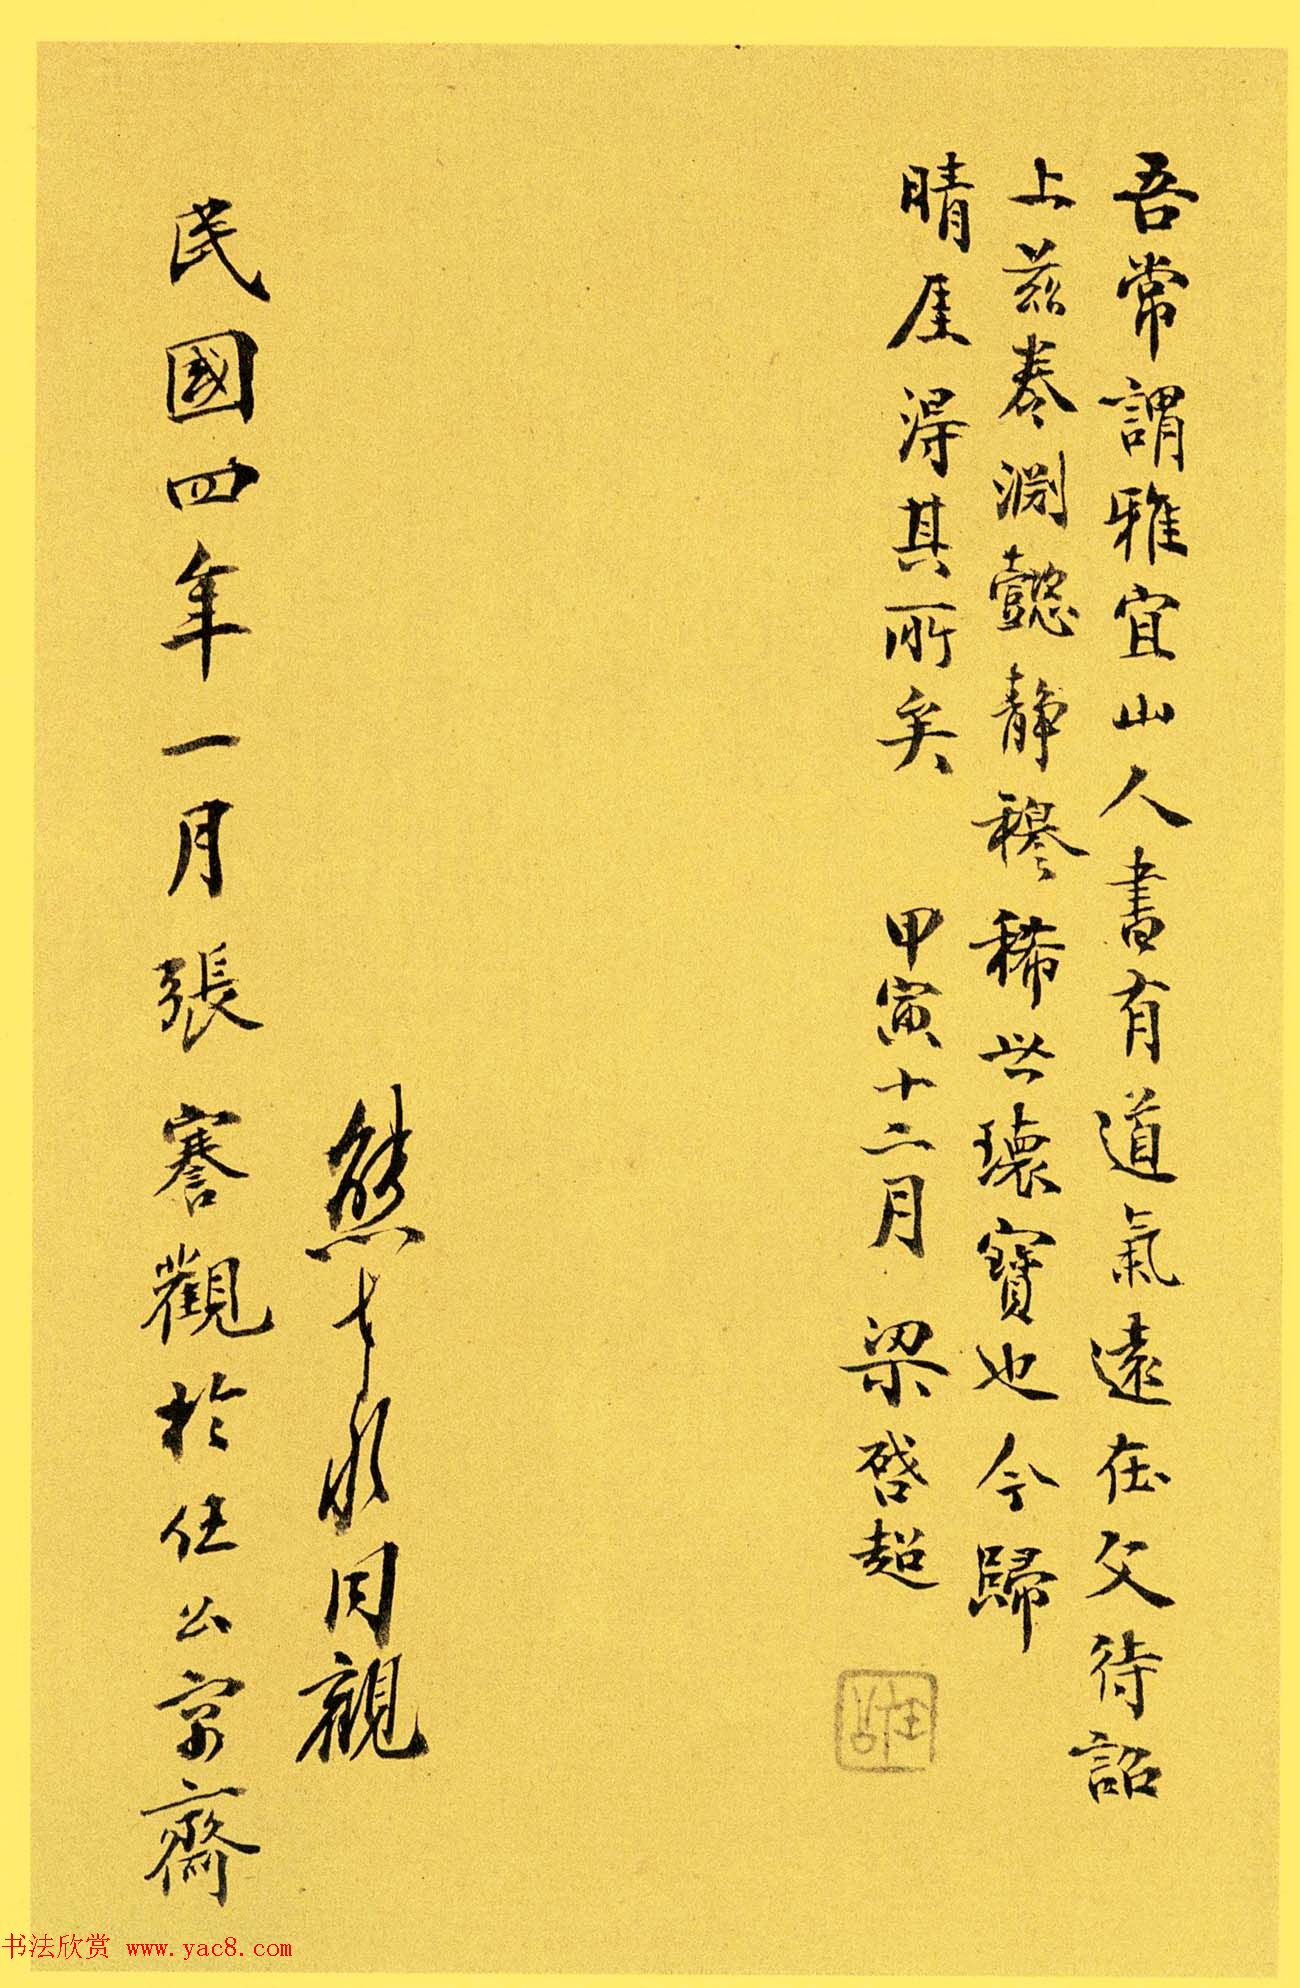 吾常謂雅宜山人書有道氣遠在文待詔
上茲卷淵懿靜穆稀世瓌寶也今歸
晴厓得其所矣 甲寅十二月 梁啓超
任公
熊希齡同觀
民國四年一月張謇觀於任公京齋
书法欣赏 www.yac8.com